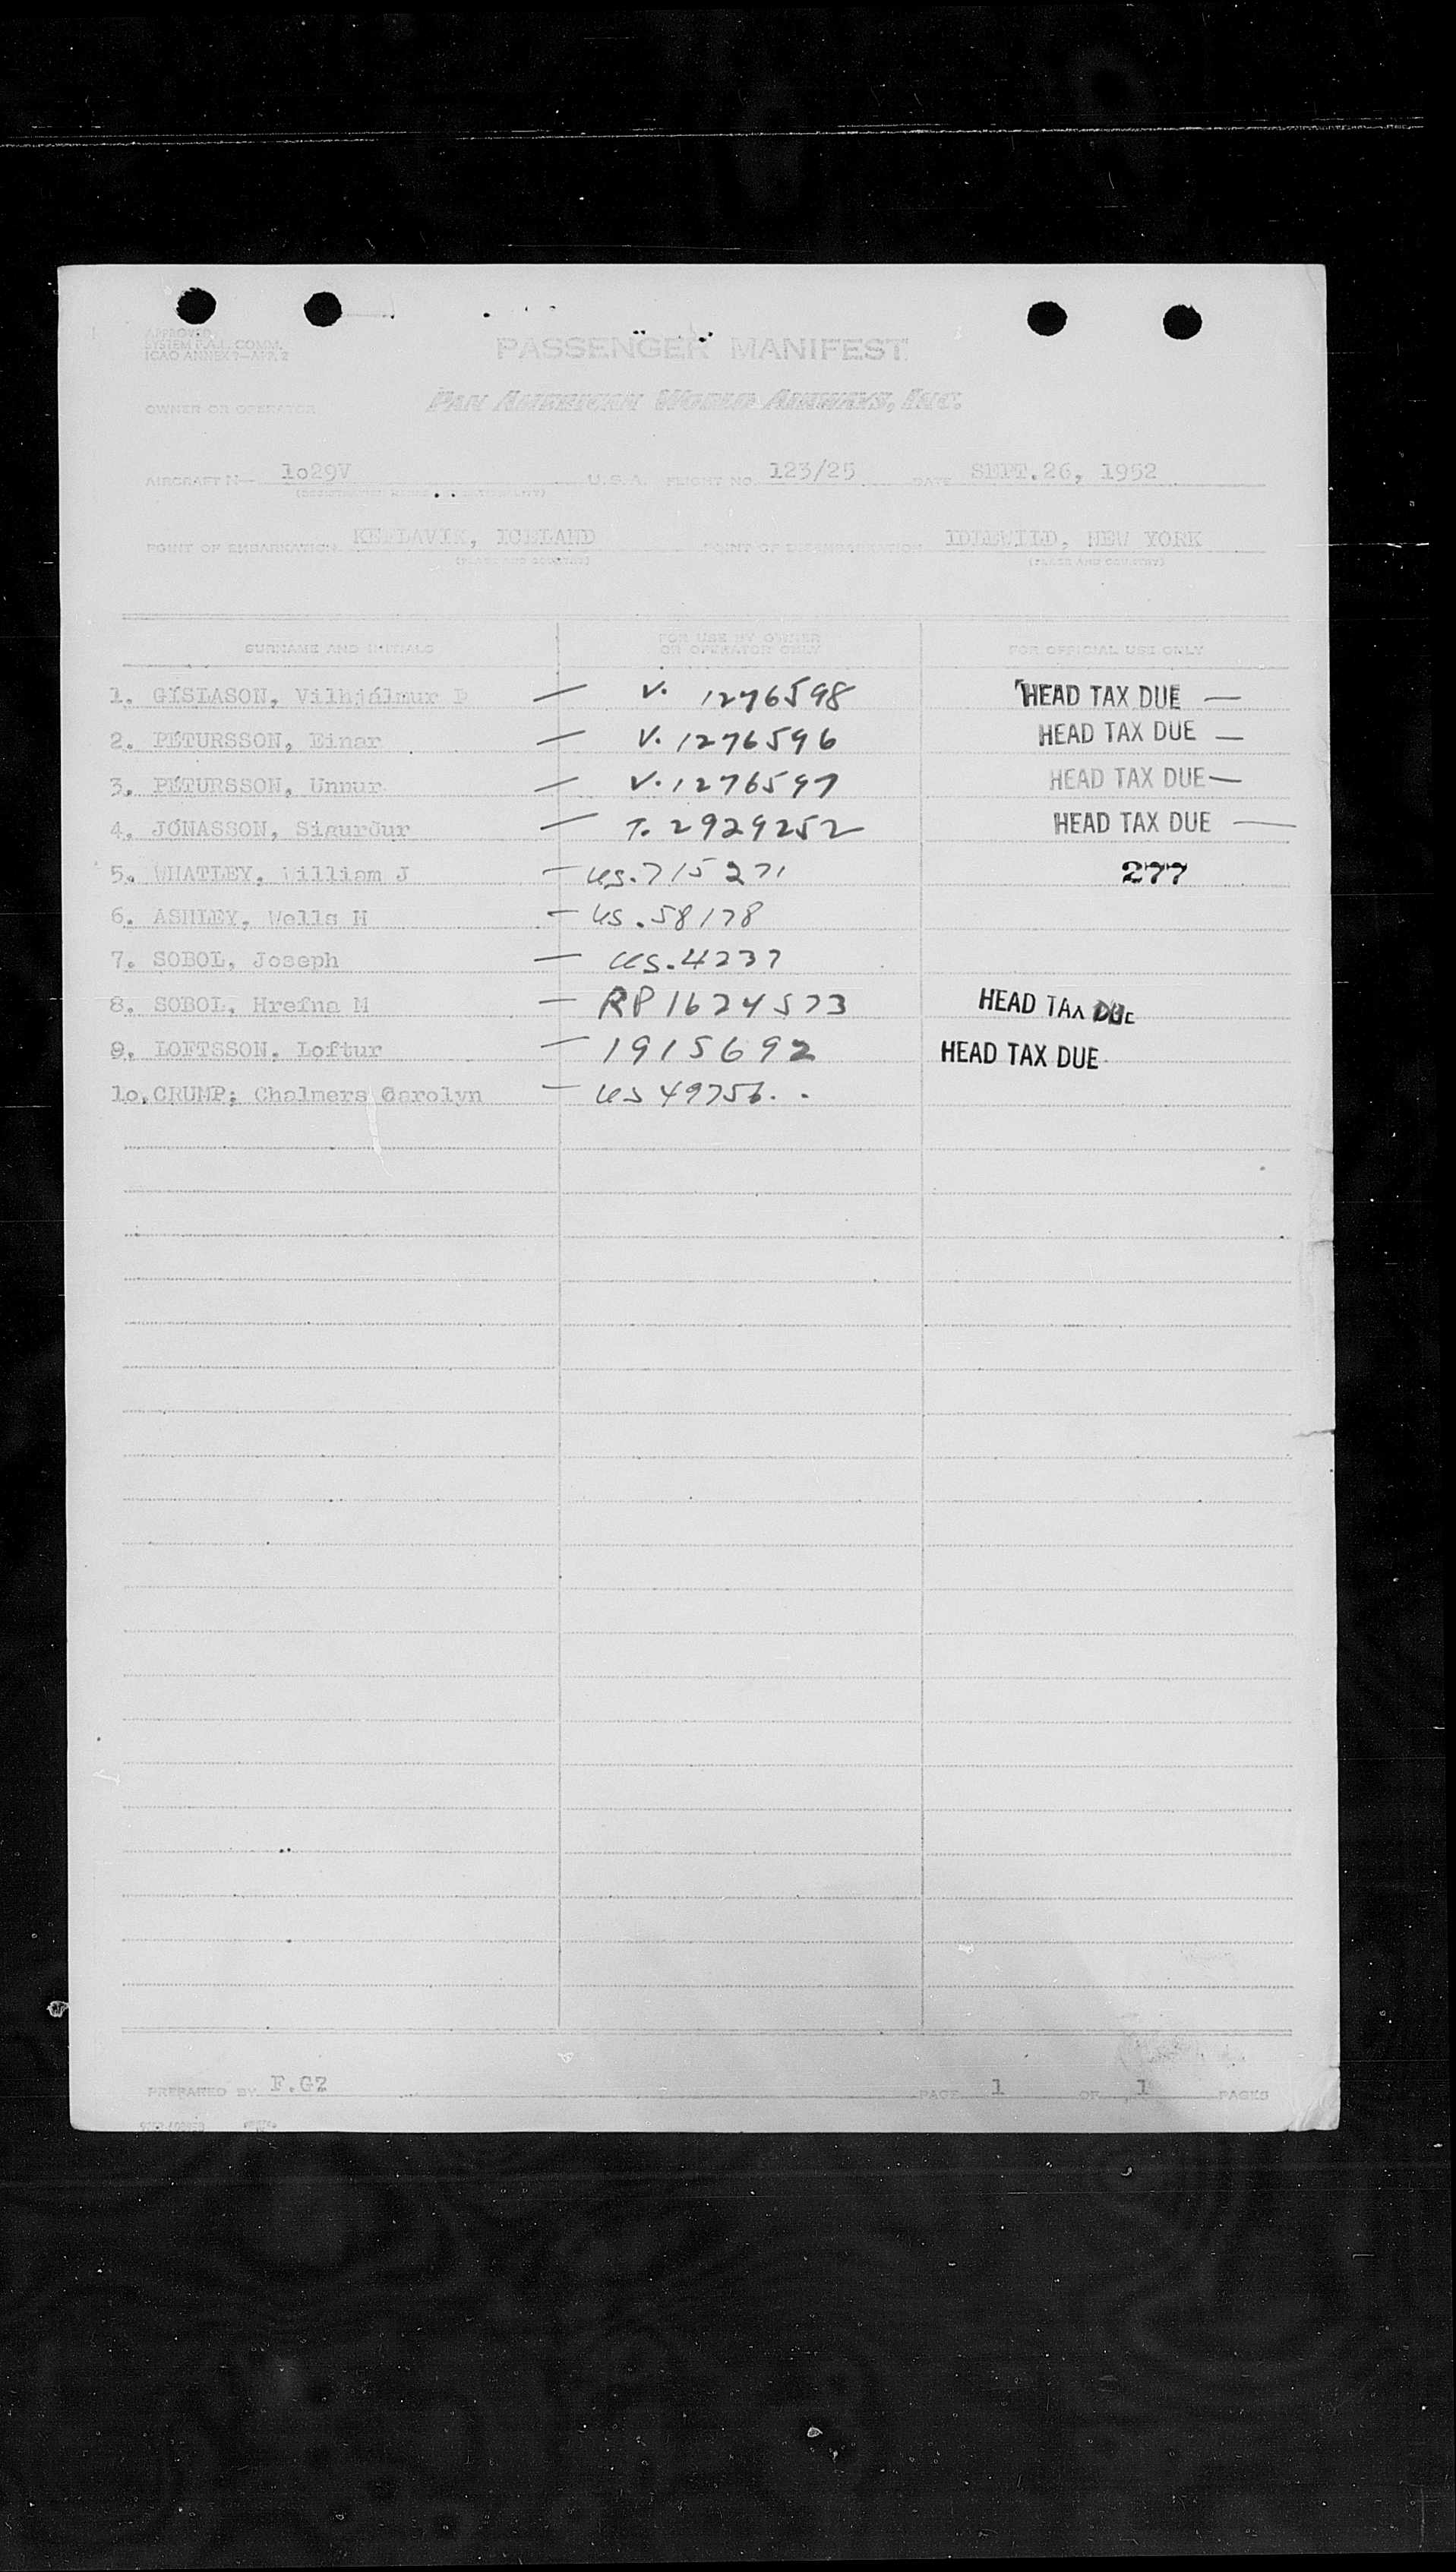 APPROVED
SYSTEM F.A.L. COMM.
ICAO ANNEX 9—APP. 2
PASSENGER MANIFEST
OWNER OR OPERATOR PAN AMERICAN WORLD AIRWAYS, INC.
AIRCRAFT N— 1o29V U.S.A. FLIGHT NO. 123/25 DATE SEPT.26, 1952
POINT OF EMBARKATION KEFLAVIK, ICELAND POINT OF DISEMBARKATION IDLEWILD, NEW YORK
(PLACE AND COUNTRY) (PLACE AND COUNTRY)
SURNAME AND INITIALS FOR USE BY OWNER OR OPERATOR ONLY FOR OFFICIAL USE ONLY
1. GÍSLASON, Vilhjálmur Þ — V. 1276598 HEAD TAX DUE —
2. PÉTURSSON, Einar — V. 1276596 HEAD TAX DUE —
3. PÉTURSSON, Unnur — V. 1276597 HEAD TAX DUE —
4. JÓNASSON, Sigurður — T. 2929252 HEAD TAX DUE —
5. WHATLEY, William J — US. 715271 277
6. ASHLEY, Wells H — US. 58178
7. SOBOL, Joseph — US. 4237
8. SOBOL, Hrefna M — RP 1624573 HEAD TAX DUE
9. LOFTSSON, Loftur — 1915692 HEAD TAX DUE
1o. CRUMP; Chalmers Carolyn — US 49756.
PREPARED BY F.GZ PAGE 1 OF 1 PAGES